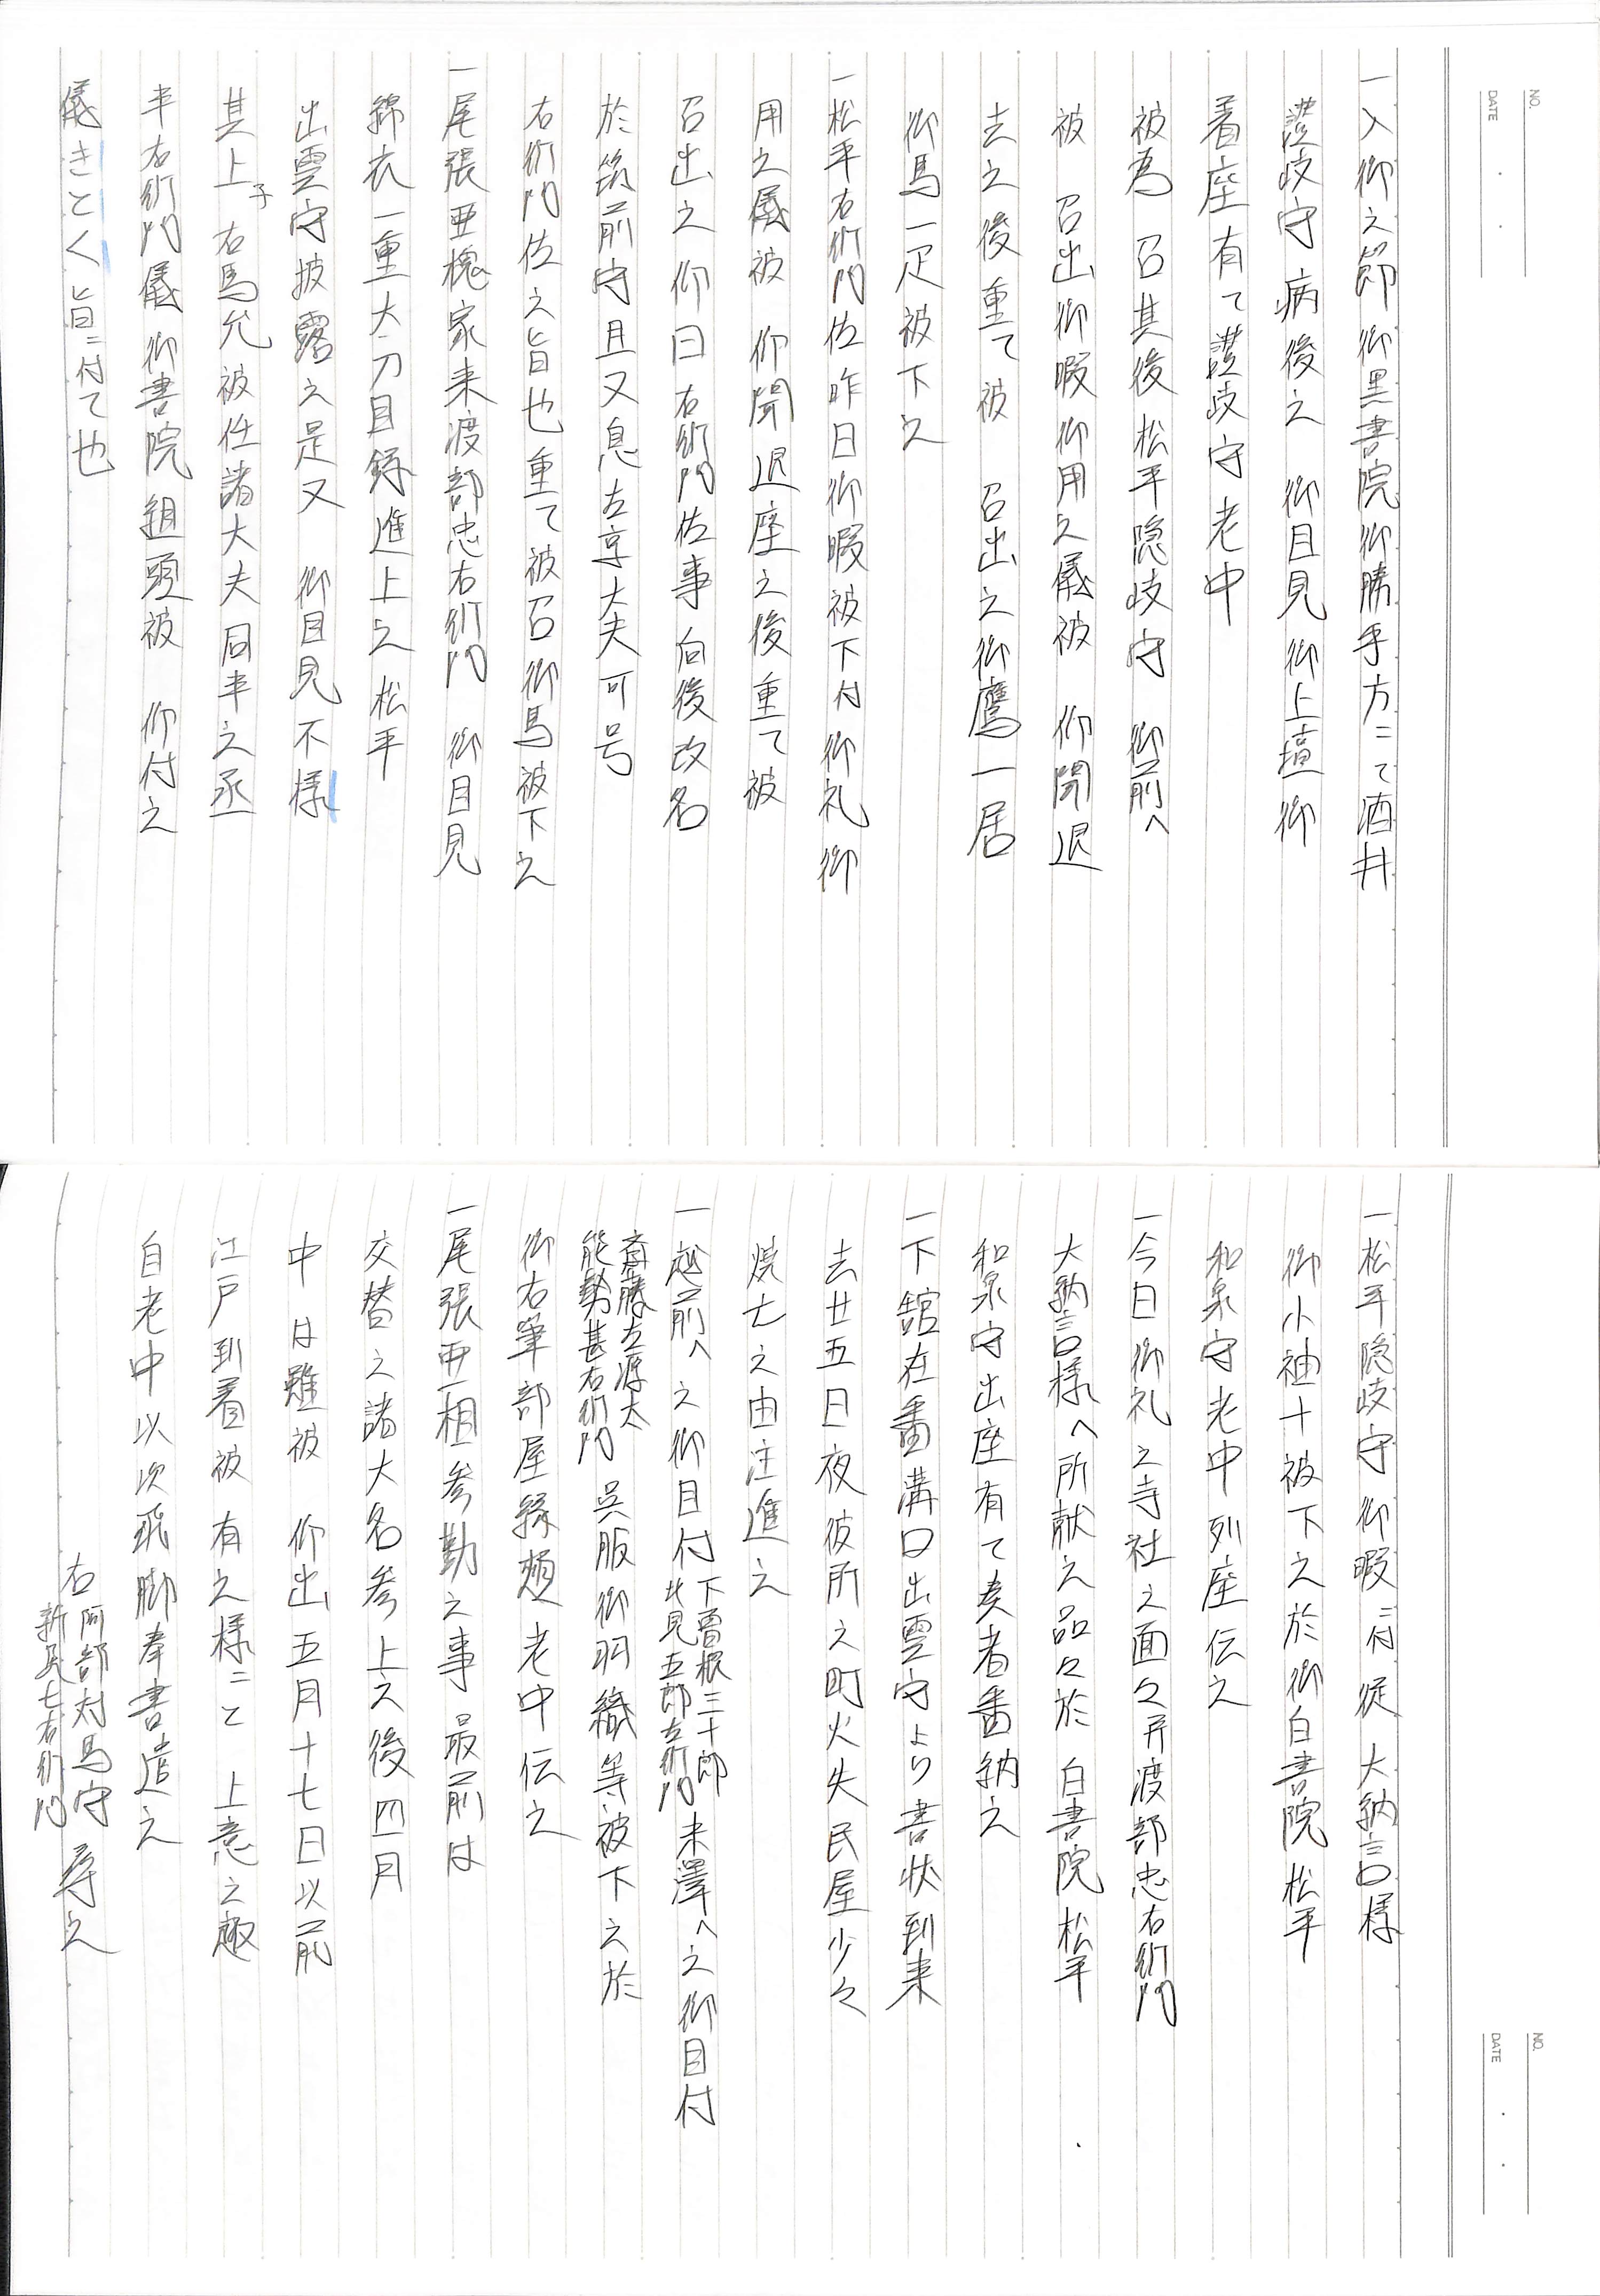 NO.
DATE
一入御之節御黒書院御勝手方ニて酒井
讃岐守病後之 御目見御上壇御
着座有て讃岐守老中
被為 召其後松平隠岐守 御前へ
被 召出御暇御用之儀被 仰聞退
去之後重て被 召出之御鷹一居
御馬一疋被下之
一松平右衛門佐昨日御暇被下付御礼御
用之儀被 仰聞退座之後重て被
召出之仰曰右衛門佐事向後改名
於筑前守且又息左京大夫可号
右衛門佐之旨也重て被召御馬被下之
一尾張亜槐家来渡部忠右衛門 御目見
綿衣一重大刀目録進上之松平
出雲守披露之是又 御目見不様
其上子右馬允被任諸大夫同半之丞
半右衛門儀御書院組頭被 仰付之
儀きとく旨ニ付て也
NO.
DATE
一松平隠岐守御暇ニ付従 大納言様
御小袖十被下之於御白書院松平
和泉守老中列座伝之
一今日御礼之寺社之面々并渡部忠右衛門
大納言様へ所献之品々於 白書院松平
和泉守出座有て奏者番納之
一下舘在番溝口出雲守より書状到来
去廿五日夜彼所之町火失民屋少々
焼亡之由注進之
一越前へ之御目付 下曽根三十郎 北見五郎左衛門 米澤へ之御目付
斎藤左源太 能勢甚右衛門 呉服御羽織等被下之於
御右筆部屋縁頬老中伝之
一尾張亜相参勤之事最前は
交替之諸大名参上之後四月
中は雖被 仰出五月十七日以前
江戸到着被有之様ニと 上意之趣
自老中以次飛脚奉書遣之
右阿部対馬守 新見七右衛門 尋之